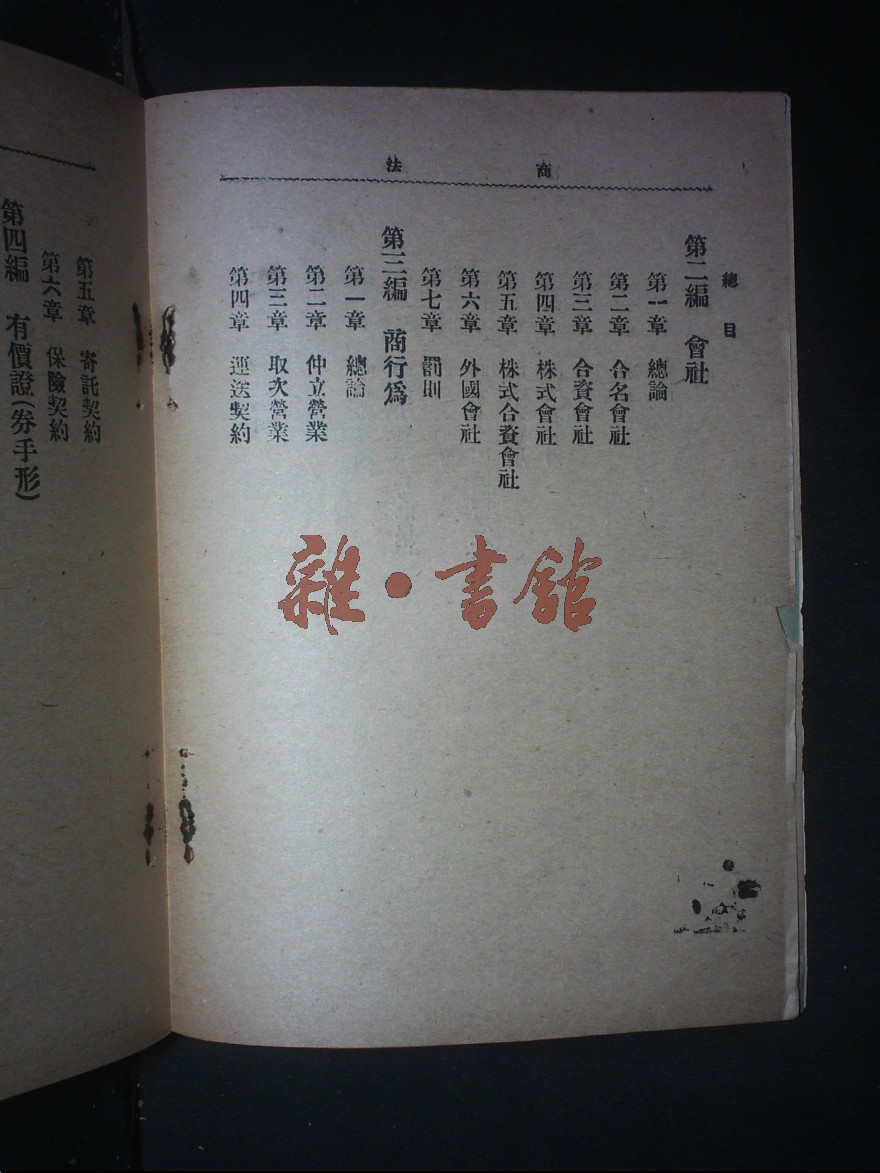 商法
總目
第二編 會社
第一章 總論
第二章 合名會社
第三章 合資會社
第四章 株式會社
第五章 株式合資會社
第六章 外國會社
第七章 罰則
第三編 商行爲
第一章 總論
第二章 仲立營業
第三章 取次營業
第四章 運送契約
第五章 寄託契約
第六章 保險契約
第四編 有價證(券手形)
雜·書館